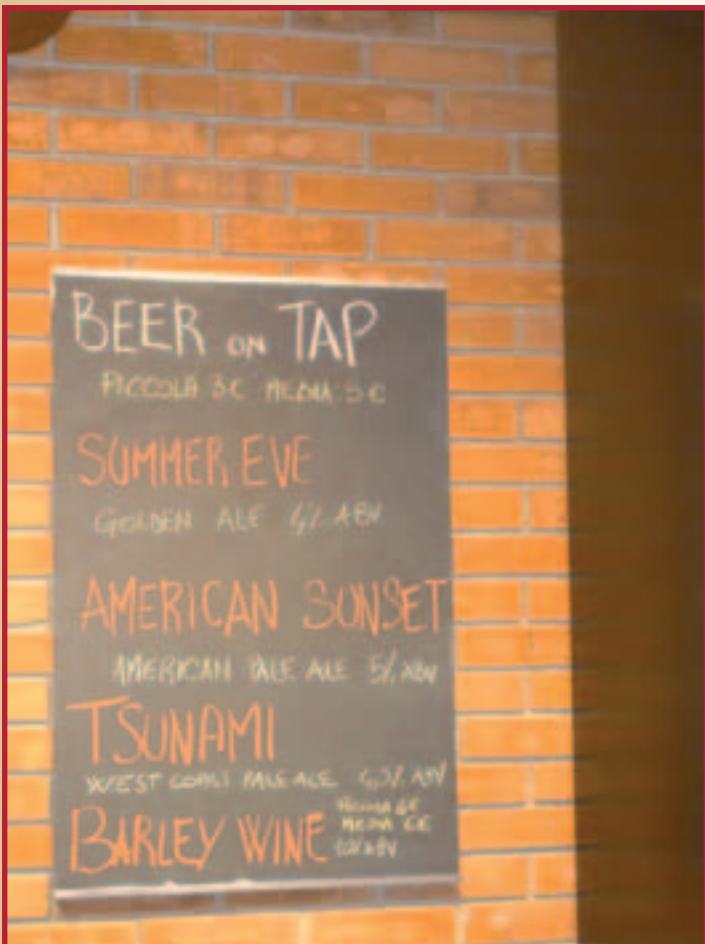 BEER ON TAP
PICCOLA 3€ MEDIA 5€
SUMMER EVE
GOLDEN ALE ABV
AMERICAN SUNSET
AMERICAN PALE ALE 5% ABV
TSUNAMI
WEST COAST PALE ALE ABV
BARLEY WINE
MEDIA 6€
ABV